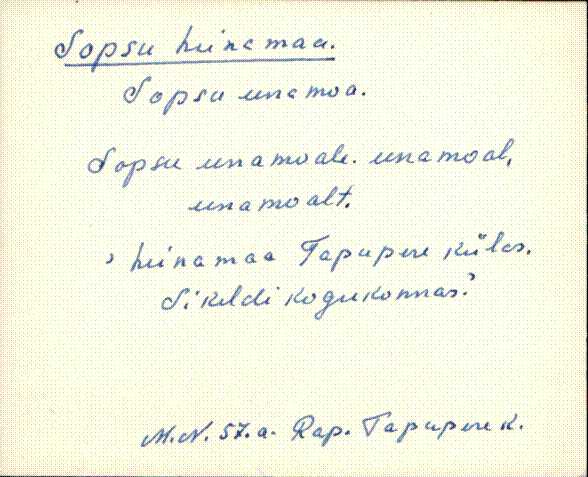 Sopsu heinamaa.
Sopsu einamoa.
Sopsu einamoale. einamoal,
einamoalt.
› heinamaa Tapupere külas.
Sikeldi kogukonnas?
M.N. 57.a. Rap. Tapupere k.